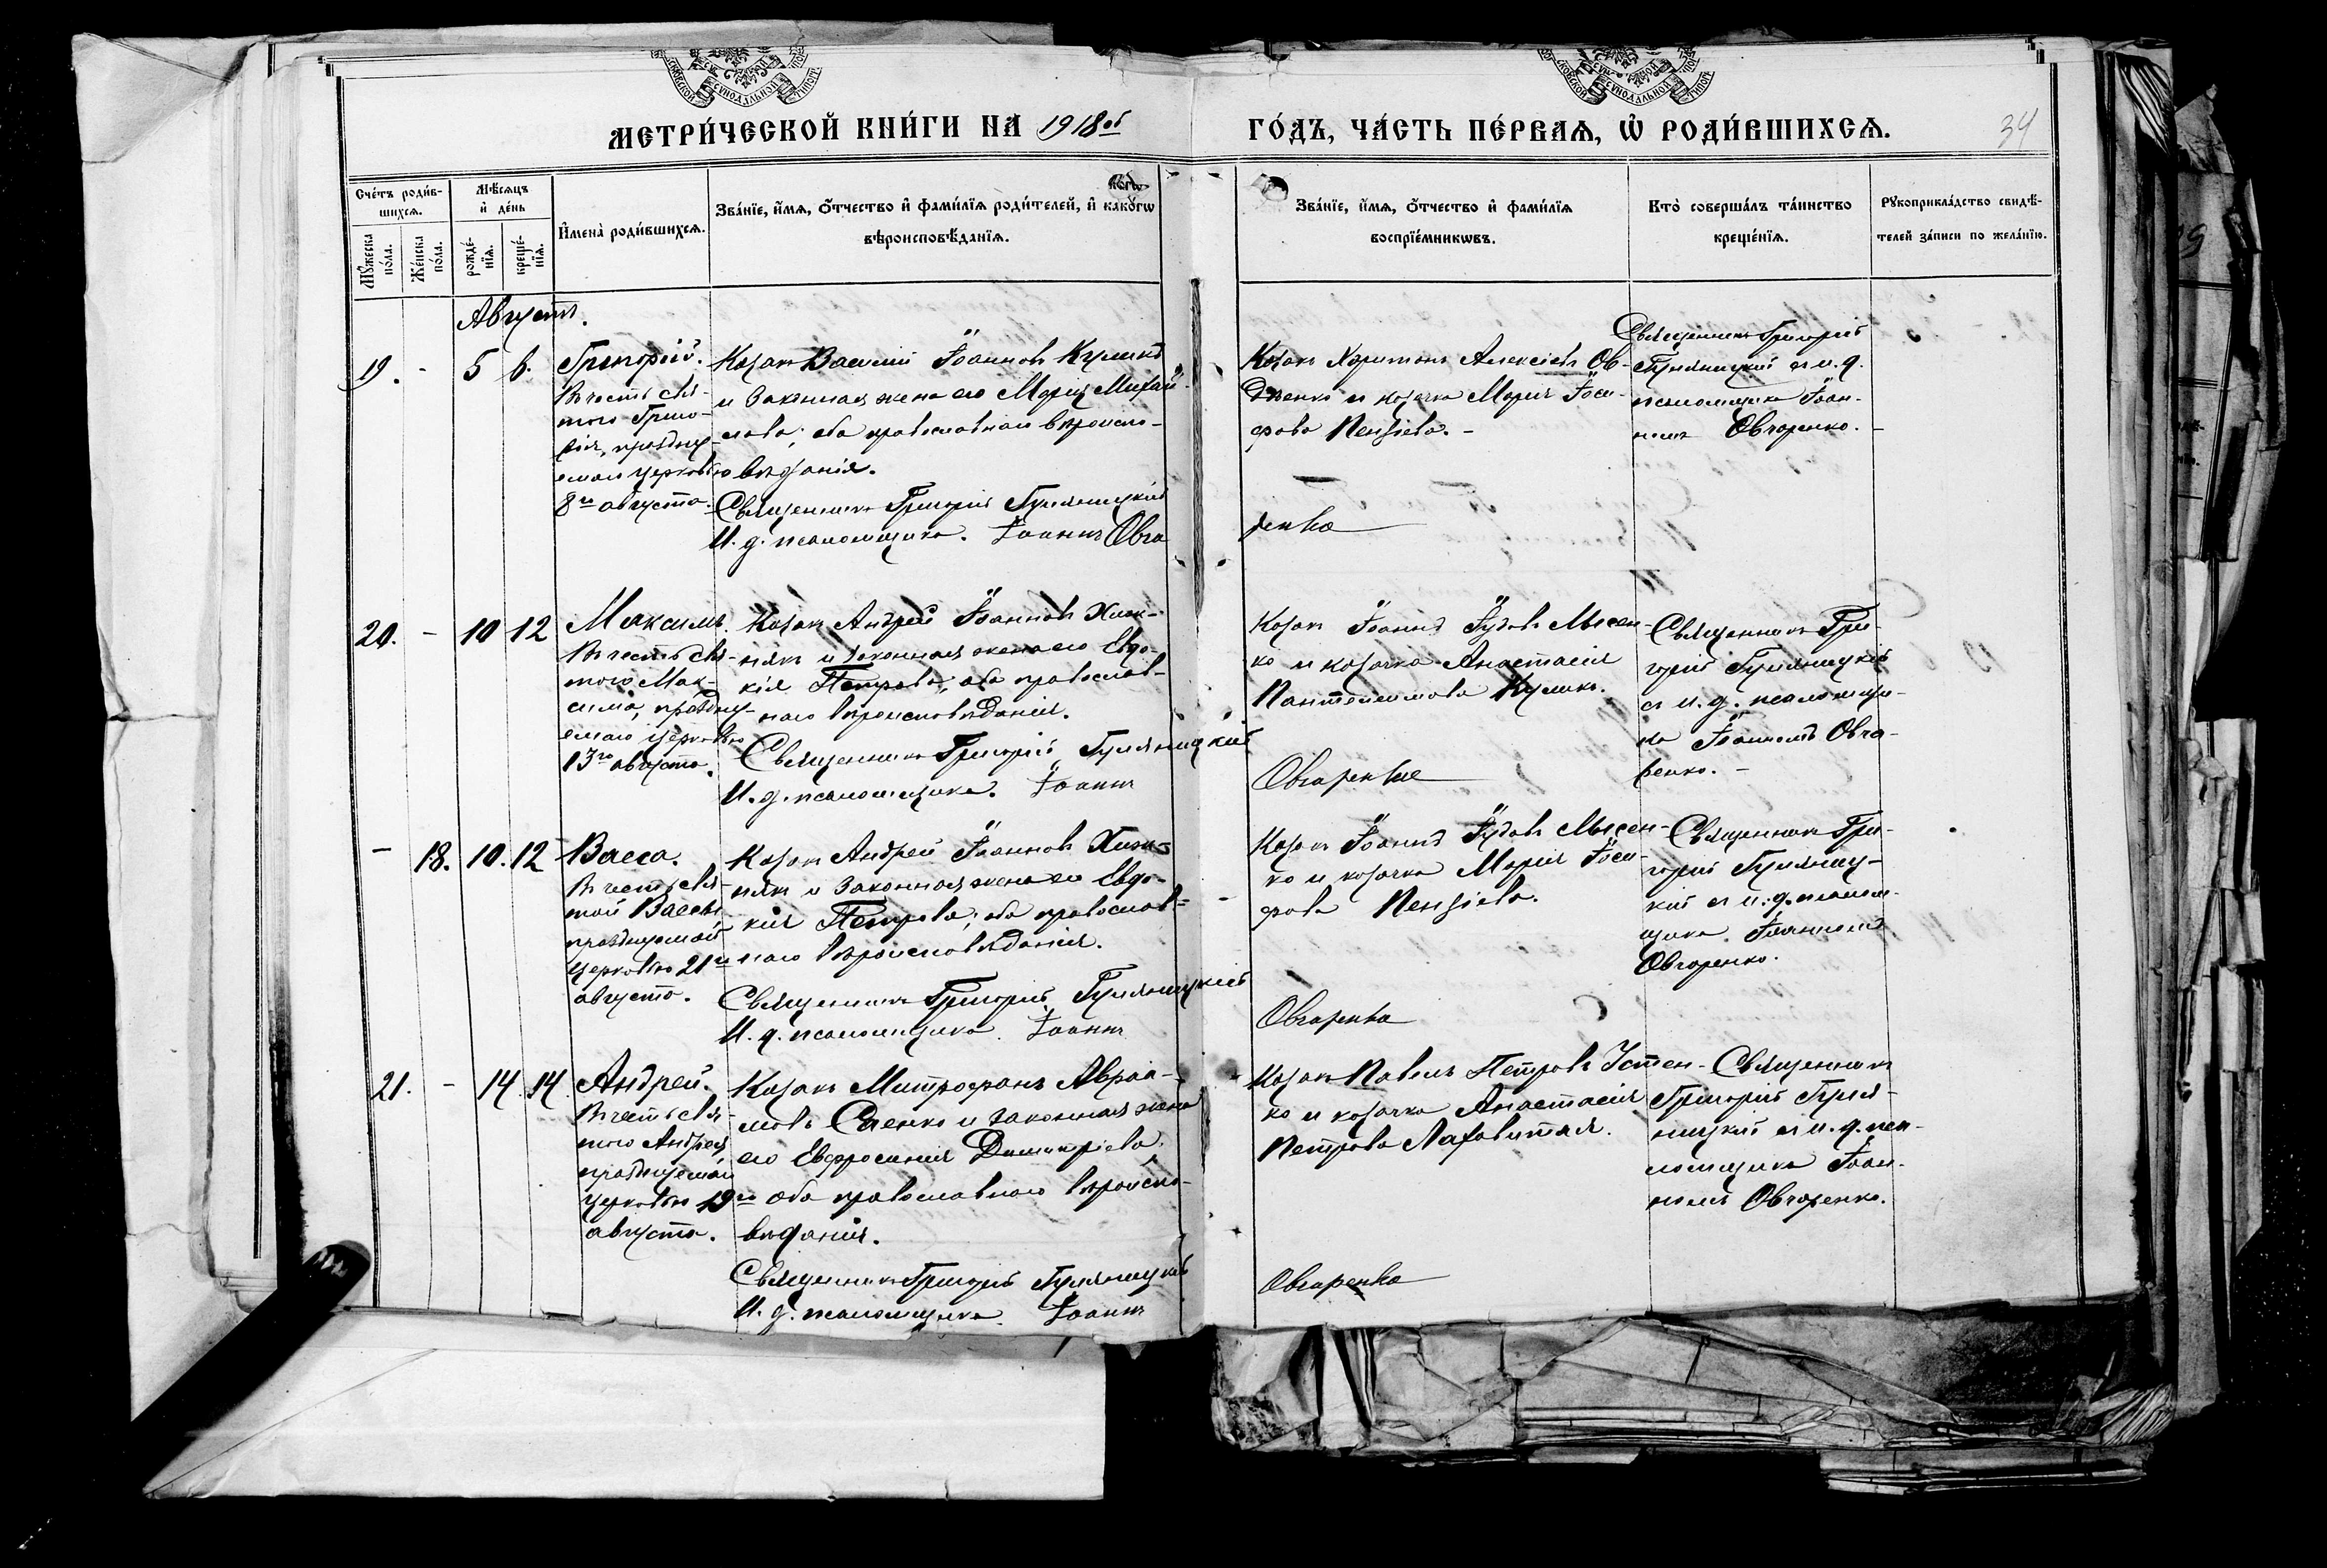 МЕТРИ́ЧЕСКОЙ КНИ́ГИ НА 1918 ой ГО́ДЪ, ЧА́СТЬ ПЕ́РВАЯ, Ѽ РОДИ́ВШИХСЯ.
34
Сче́тъ роди́в-
шихся.
Мѣ́сяцъ
и҆ де́нь
И҆мена̀ роди́вшихся.
Зва́нїе, и҆́мя, Ѻ҆́тчество и҆ фами́лїя роди́телей, и҆ како́гѡ
вѣроисповѣ́данїя.
Зва́нїе, и҆́мя, Ѻ҆́тчество и҆ фами́лїя
воспрїе́мникѡвъ.
Кто̀ соверша́лъ та́инство
креще́нїя.
Рꙋкоприкла́дство свидѣ́-
телей за́писи по жела́нїю.
Мꙋ́жеска
по́ла.
Же́нска
по́ла.
рожде́-
нїя.
креще́-
нїя.
Августъ.
19. - 5 6. Григорій.
Въ честь свя-
того Григо-
рія, праздну-
емаго церковью
8го августа.
Козакъ Василій Іоанновъ Куликъ
и законная жена его Марія Михай-
лова; оба православнаго вѣроиспо-
вѣданія.
Священникъ Григорій Гуляницкій
И. д. псаломщика. Іоаннъ Овча
Козакъ Харитонъ Алексѣевъ Ов-
дѣенко и козачка Марія Іоси-
фова Пензіева. -
ренко
Священникъ Григорій
Гуляницкій съ и. д.
псаломщика Іоан-
номъ Овчаренко. -
20. - 10 12 Максимъ.
Въ честь свя-
того Мак-
сима, праздну-
емаго церковью
13го августа.
Козакъ Андрей Іоанновъ Хиж-
някъ и законная жена его Евдо-
кія Петрова; оба православ-
наго вѣроисповѣданія.
Священникъ Григорій Гуляницкій
И. д. псаломщика. Іоаннъ
Козакъ Іоаннъ Іудовъ Мысен-
ко и козачка Анастасія
Пантелеимова Куликъ.
Овчаренко
Священникъ Гри-
горій Гуляницкій
съ и. д. псаломщи-
ка Іоанномъ Овча-
ренко. -
- 18. 10. 12 Васса.
Въ честь свя-
той Вассы
празднуемой
церковью 21го
августа.
Козакъ Андрей Іоанновъ Хиж-
някъ и законная жена его Евдо-
кія Петрова; оба православ-
наго вѣроисповѣданія.
Священникъ Григорій Гуляницкій
И. д. псаломщика. Іоаннъ
Козакъ Іоаннъ Іудовъ Мысен-
ко и козачка Марія Іоси-
фова Пензіева.
Овчаренко
Священникъ Гри-
горій Гуляниц-
кій съ и. д. псалом-
щика Іоанномъ
Овчаренко.
21. - 14. 14. Андрей.
Въ честь свя-
того Андрея
празднуемаго
церковью 19го
августа.
Козакъ Митрофанъ Авраа-
мовъ Саенко и законная жена
его Евфросинія Димитріева,
оба православнаго вѣроиспо-
вѣданія.
Священникъ Григорій Гуляницкій
И. д. псаломщика. Іоаннъ
Козакъ Павелъ Петровъ Устен-
ко и козачка Анастасія
Петрова Лаховитая.
Овчаренко
Священникъ
Григорій Гуля-
ницкій съ и. д. пса-
ломщика Іоан-
номъ Овчаренко.